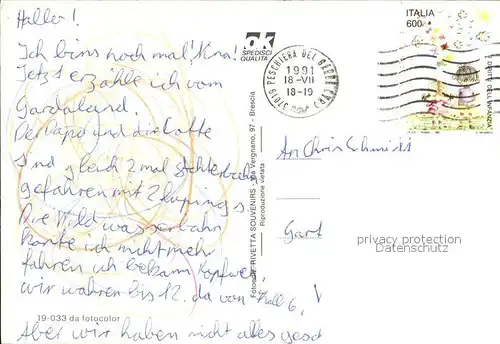 Hallo!
Ich bins noch mal!
Jetzt erzähle ich vom
Gardaland.
Der Papa und die Lotte
sind gleich 2 mal Achterbahn
gefahren mit 2 Lupings
Die Wildwasserbahn
konte ich nicht mehr
fahren ich bekam Kopfweh,
wir wahren bis 12. da von
Aber wir haben nicht alles
OK
SPEDISCI
QUALITÀ
PESCHIERA DEL GARDA
37019
1991
18-VII
18-19
ITALIA
600
An Chris Schmidt
Gart
privacy protection
watermark
Fotocolor RIVETTA SOUVENIRS - Via Vergnano, 97 - Brescia
Riproduzione vietata
19-033 da fotocolor